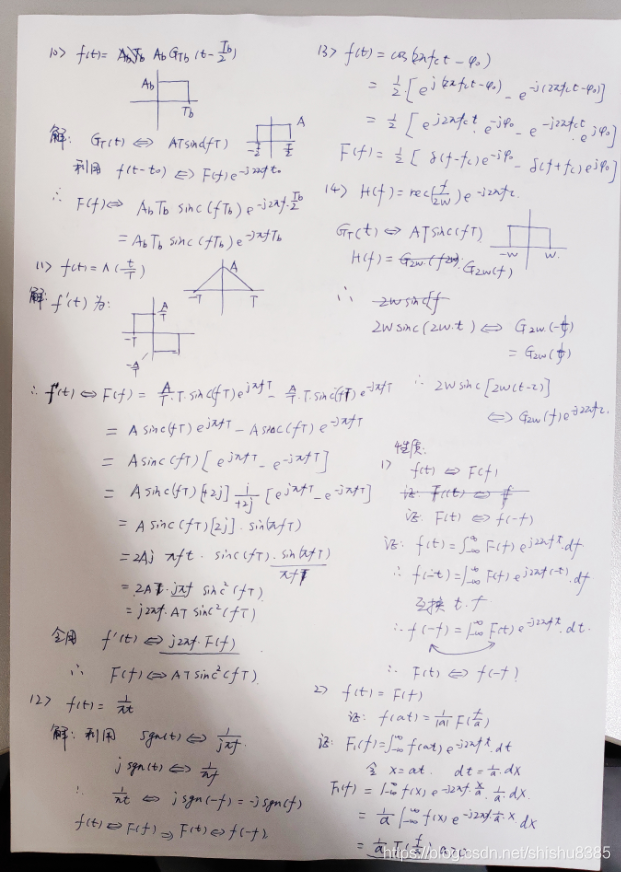 10> f(t) = A_b G_{T_b} (t - T_b/2)
A_b
T_b
解: G_T(t) ⇔ AT sinc(fT)
A
-T/2
T/2
利用 f(t-t₀) ⇔ F(f) e^{-j2πft₀}
∴ F(f) ⇔ A_b T_b sinc(fT_b) e^{-j2πf·T_b/2}
= A_b T_b sinc(fT_b) e^{-jπfT_b}
11> f(t) = Λ(t/T)
A
-T
T
解: f'(t) 为:
A/T
-T
T
-A/T
∴ f'(t) ⇔ F(f) = A/T·T·sinc(fT) e^{jπfT} - A/T·T·sinc(fT) e^{-jπfT}
= A sinc(fT) e^{jπfT} - A sinc(fT) e^{-jπfT}
= A sinc(fT) [e^{jπfT} - e^{-jπfT}]
= A sinc(fT) [+2j] j/+2j [e^{jπfT} - e^{-jπfT}]
= A sinc(fT) [2j]·sin(πfT)
= 2Aj πft·sinc(fT)·sin(πfT)/πfT
= 2AT·jπf sinc²(fT)
= j2πf·AT sinc²(fT)
f'(t) ⇔ j2πf·F(f)
∴ F(f) ⇔ AT sinc²(fT)
12> f(t) = 1/πt
解: 利用 sgn(t) ⇔ 1/jπf
j sgn(t) ⇔ 1/πf
∴ 1/πt ⇔ j sgn(-f) = -j sgn(f)
f(t) ⇔ F(f) ⇒ F(t) ⇔ f(-f)
13> f(t) = cos(2πf_c t - φ₀)
= 1/2·[e^{j(2πf_c t-φ₀)} - e^{-j(2πf_c t-φ₀)}]
= 1/2 [e^{j2πf_c t}·e^{-jφ₀} - e^{-j2πf_c t}·e^{jφ₀}]
F(f) = 1/2 [δ(f-f_c) e^{-jφ₀} - δ(f+f_c) e^{jφ₀}]
14> H(f) = rec(f/2W) e^{-j2πfτ}
G_T(t) ⇔ AT sinc(fT)
-W
W
H(f) = G_{2W}(f)
∴ 2W sinc(f
2W sinc(2W·t) ⇔ G_{2W}(-f)
= G_{2W}(f)
∴ 2W sinc[2W(t-τ)]
⇔ G_{2W}(f) e^{-j2πfτ}
性质:
1> f(t) ⇔ F(f)
证: F(t) ⇔ f
证: F(t) ⇔ f(-f)
证: f(t) = ∫_{-∞}^{∞} F(f) e^{j2πft}·df
∴ f(-t) = ∫_{-∞}^{∞} F(f) e^{j2πf(-t)}·df
互换 t. f
∴ f(-f) = ∫_{-∞}^{∞} F(t) e^{-j2πft}·dt.
∴ F(t) ⇔ f(-f)
2> f(t) = F(f)
证: f(at) = 1/|a| F(f/a)
证: F₁(f) = ∫_{-∞}^{∞} f(at) e^{-j2πft}·dt
令 x = at. dt = 1/a·dx
F₁(f) = ∫_{-∞}^{∞} f(x) e^{-j2πf·x/a}·1/a·dx
= 1/a ∫_{-∞}^{∞} f(x) e^{-j2πf·1/a·x} dx
= 1/a F(f/a) a>0
https://blog.csdn.net/shishu8385